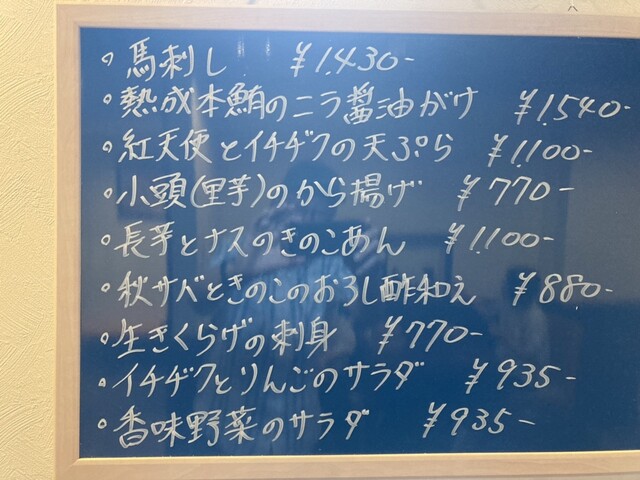 ・馬刺し ¥1.430-
・熟成本鮪のニラ醤油がけ ¥1.540-
・紅天使とイチヂクの天ぷら ¥1.100-
・小頭(里芋)のから揚げ ¥770-
・長芋とナスのきのこあん ¥1.100-
・秋サバときのこのおろし酢和え ¥880-
・生きくらげの刺身 ¥770-
・イチヂクとりんごのサラダ ¥935-
・香味野菜のサラダ ¥935-